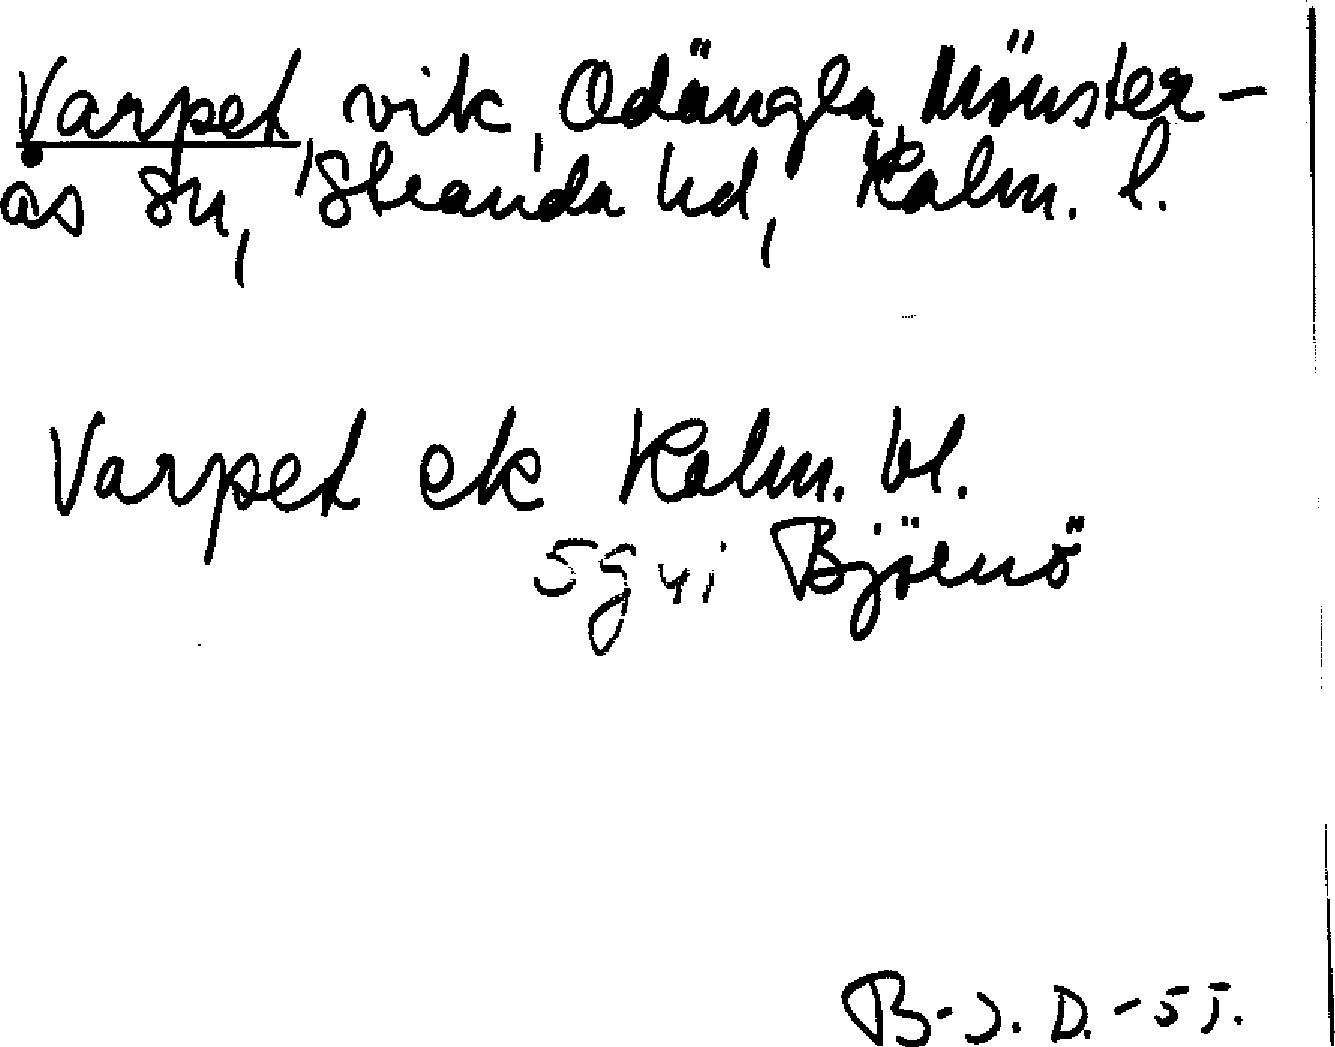 Varpet, vik, Ödängla, Mönster-
ås sn, Stranda hd, Kalm. l.
Varpet ek Kalm. bl.
5g yi Björnö
B-J. D. -55.